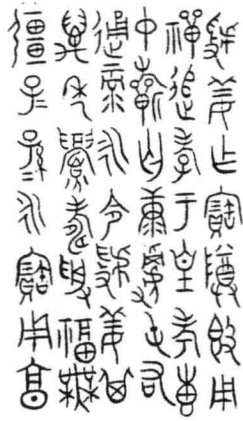 虢姜乍寶尊𣪘用
禪追孝于皇考惠
中祈匄康屯右
通彔永令虢姜其
萬年眉壽受福無
疆子孫永寶用享